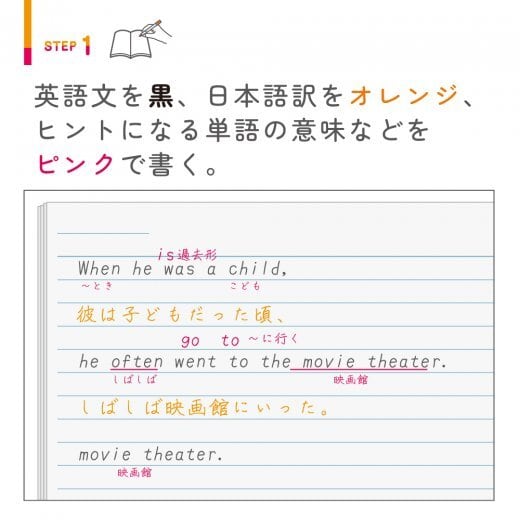 STEP 1
英語文を黒、日本語訳をオレンジ、
ヒントになる単語の意味などを
ピンクで書く。
is過去形
When he was a child,
～とき こども
彼は子どもだった頃、
go to ～に行く
he often went to the movie theater.
しばしば 映画館
しばしば映画館にいった。
movie theater.
映画館